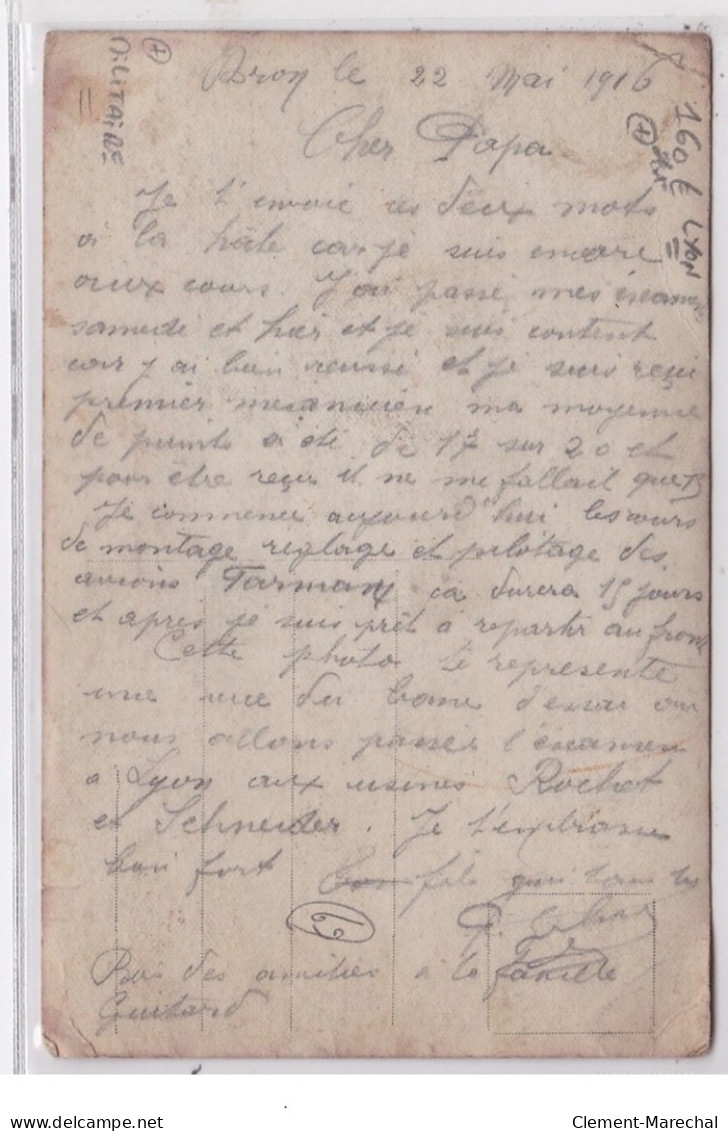 Bron le 22 Mai 1916
Cher Papa
Je t'envoie ces deux mots
à la hâte car je suis encore
aux cours. J'ai passé mes examens
samedi et hier et je suis content
car j'ai bien reussi et je suis reçu
premier mecanicien ma moyenne
de points a été de 17 sur 20 et
pour être reçu il ne me fallait que 13
Je commence aujourd'hui les cours
de montage reglage et pilotage des
avions Farman ca durera 15 jours
et apres je suis prêt à repartir au front
Cette photo te represente
une vue du banc d'essai où
nous allons passer l'examen
à Lyon aux usines Rochet
et Schneider. Je t'embrasse
bien fort Ton fils qui
P.
Bien des amities à la famille
Guitard
MILITAIRE
160 € LYON
Clement-Marechal